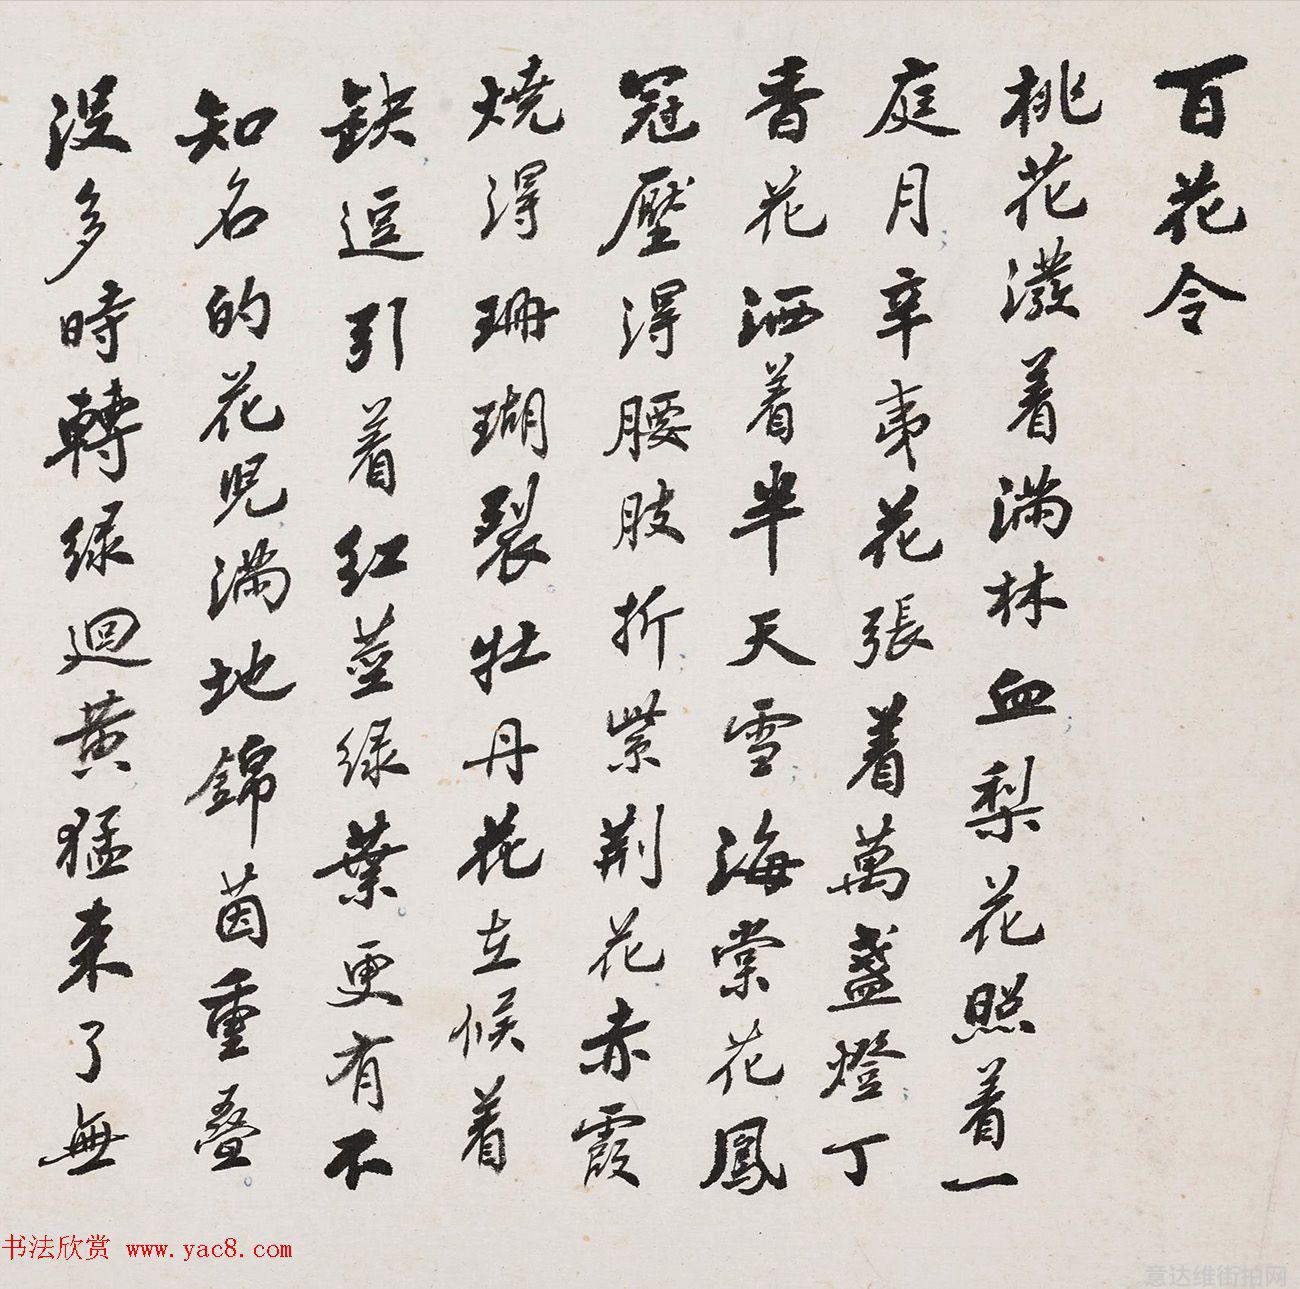 百花令
桃花潑着滿林血梨花照着一
庭月辛夷花張着萬盞燈丁
香花洒着半天雪海棠花鳳
冠壓得腰肢折紫荆花赤霞
燒得珊瑚裂牡丹花立候着
缺逗引着紅莖緑葉更有不
知名的花児满地錦茵重疊
沒多時轉緑迴黄猛来了無
书法欣赏 www.yac8.com
意达维街拍网